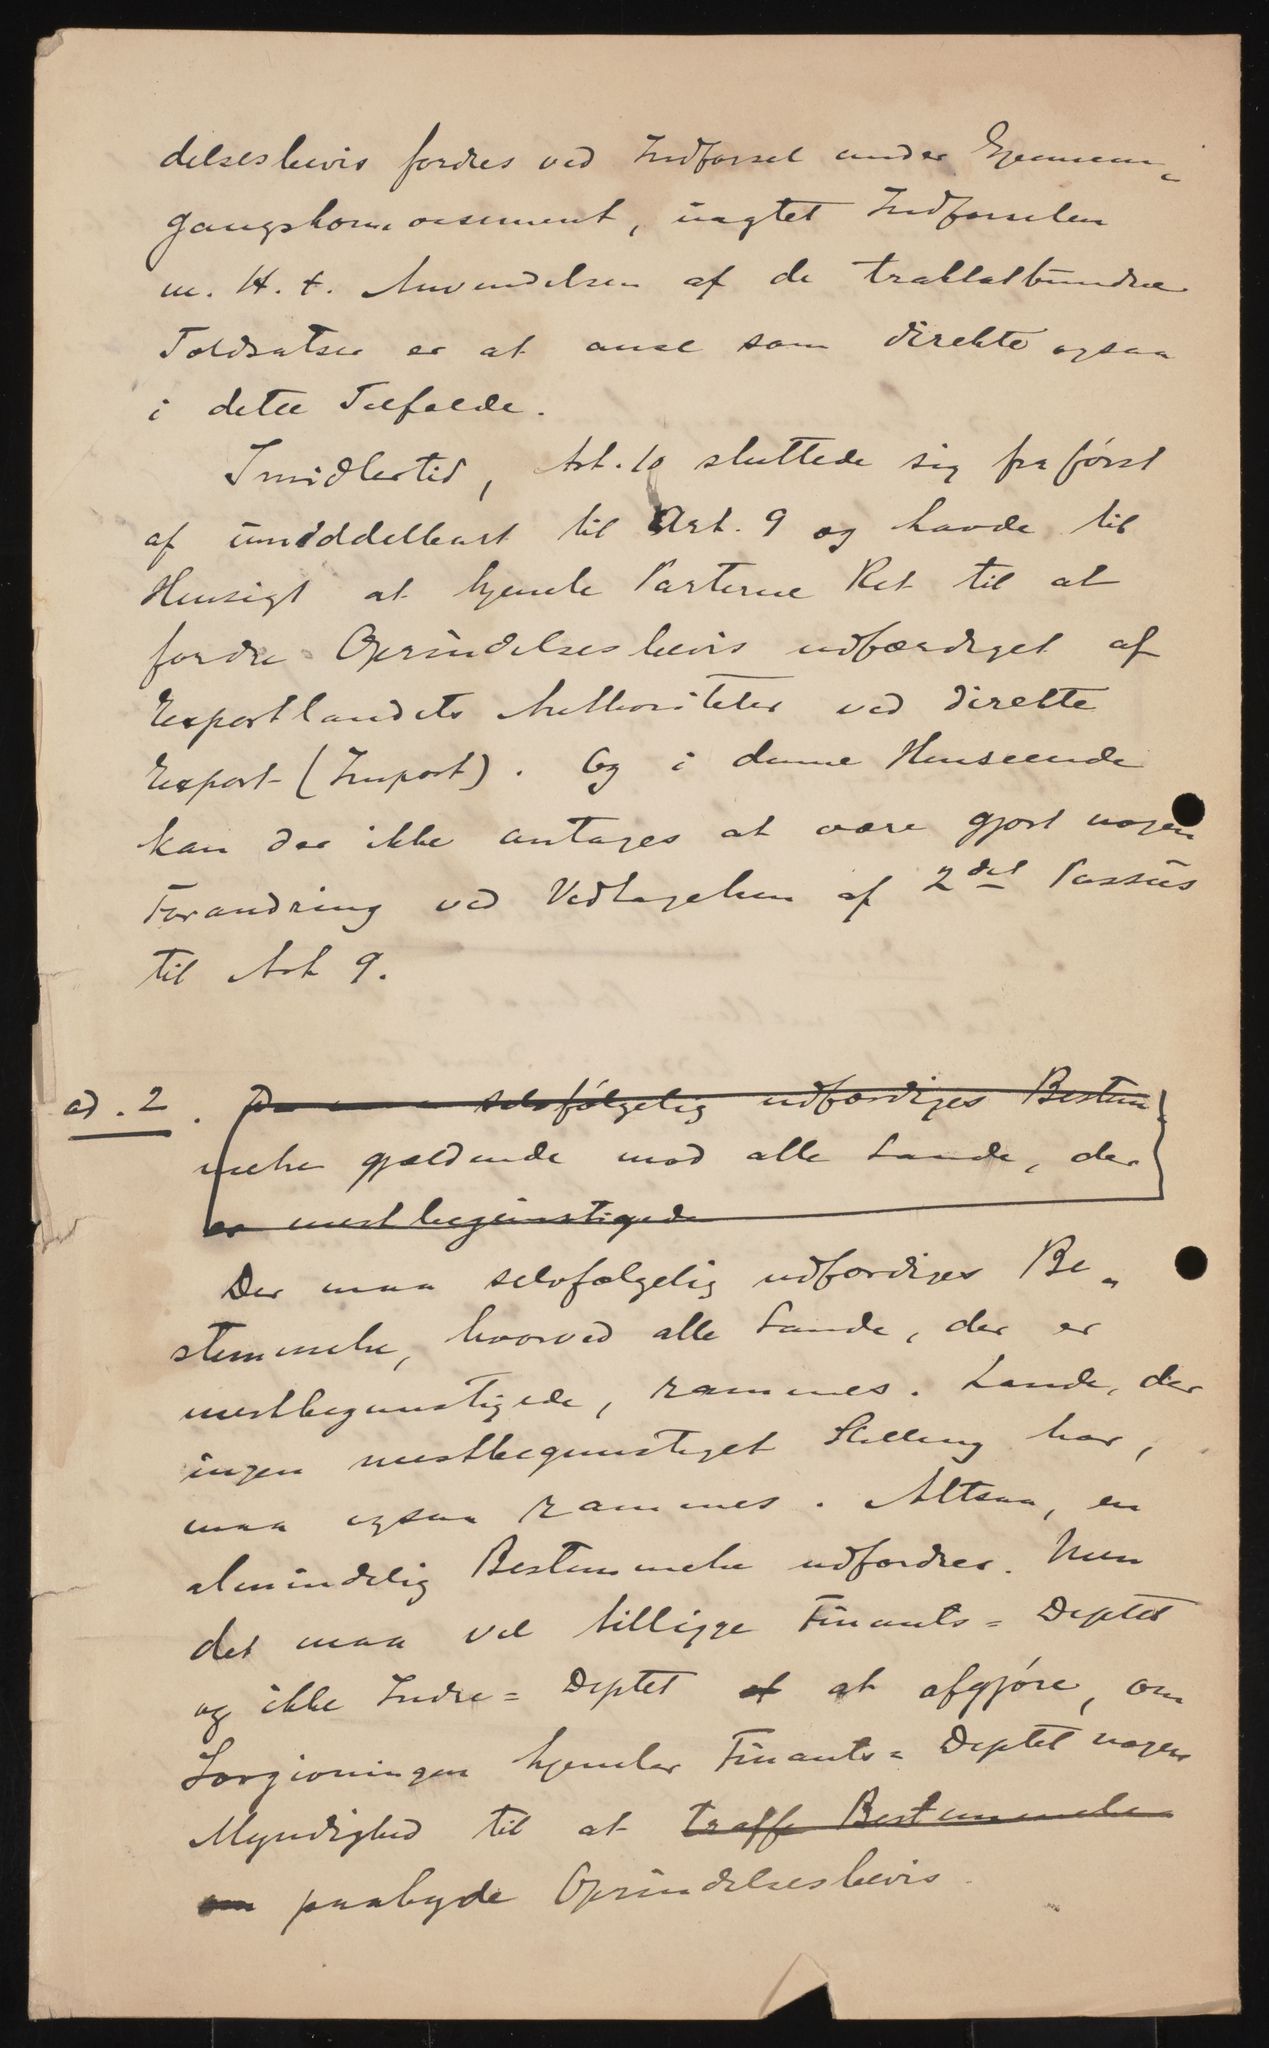 delsesbevis fordres ved Indførsel under Gjennem-
gangskonnossement, uagtet Indførselen
m. H. t. Anvendelsen af de traktatbundne
Toldsatser er at anse som direkte ogsaa
i dette Tilfælde.
Imidlertid, Art. 10 sluttede sig fra først
af umiddelbart til Art. 9 og havde til
Hensigt at hjemle Parterne Ret til at
fordre Oprindelsesbevis udfærdiget af
Exportlandets Authoriteter ved direkte
Export (Import). Og i denne Henseende
kan der ikke antages at være gjort nogen
Forandring ved Vedtagelsen af 2det Passus
til Art 9.
ad. 2. selvfølgelig udfærdiges Bestem-
melse gjældende mod alle Lande, der
er mestbegunstigede
Der maa selvfølgelig udfærdiges Be-
stemmelse, hvorved alle Lande, der er
mestbegunstigede, rammes. Lande, der
ingen mestbegunstiget Stilling har,
maa ogsaa rammes. Altsaa, en
almindelig Bestemmelse udfordres. Men
det maa vel tilligge Finants-Deptet
og ikke Indre-Deptet at at afgjøre, om
Lovgivningen hjemler Finants-Deptet nogen
Myndighed til at træffe Bestemmelse
om paabyde Oprindelsesbevis.